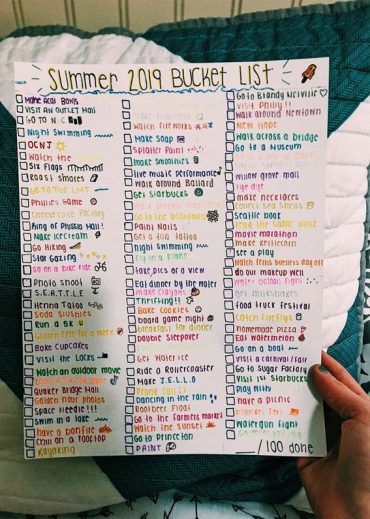 Summer 2019 Bucket List
Make Acai Bowls
Visit an outlet mall
Go to N C
Night Swimming
OCNJ
Watch the
Six Flags
Roast Smores
Go to the
Phillies Game
Cheesecake Factory
King of Prussia Mall!
Make Icecream
Go Hiking
Star Gazing
Go on a bike ride
Photo Shoot
S.E.A.T.T.L.E
Henna Tatoo
Soda Slushies
Run a 5K
Gluten free for a week
Bake Cupcakes
Visit the Locks
Watch an outdoor movie
Quaker Bridge Mall
Golden hour photos
Space Needle!!!
Swim in a lake
Have a bonfire
Chill on a rooftop
Kayaking
Watch fireworks
Make Soap
Splatter Paint
Make Smoothies
Live music performance
Walk around Ballard
Get Starbucks
Go to the boardwalk
Paint Nails
Get a fun tattoo
Night Swimming
Fly in a plane
take pics of a view
Eat dinner by the water
Make crayons
Thrifting!!
Bake Cookies
board game night
breakfast for dinner
Double Sleepover
Get Water Ice
Ride a Rollercoaster
Make J.E.L.L.O
Prank Call
Dancing in the rain
Rootbeer Float
Go to the farmers market
Watch the Sunset
Go to Princeton
PAINT
Go to Brandy Melville
Visit Philly!!
Walk around Newtown
New Hope
Walk across a bridge
Go to a Museum
Willow grove mall
tye dye
make necklaces
collect sea shells
Seattle book
read the same book
movie marathon
make kettlecorn
see a play
Watch ferris buellers day off
do our makeup well
Water balloon fight
get milkshakes
food truck festival
Catch fireflys
homemade pizza
Eat watermelon
Go on a boat
Visit a carnival/fair
Go to Sugar Factory
Visit 1st Starbucks
Play with
have a picnic
blanket fort
Watergun fight
Go mini golfing
__/100 done